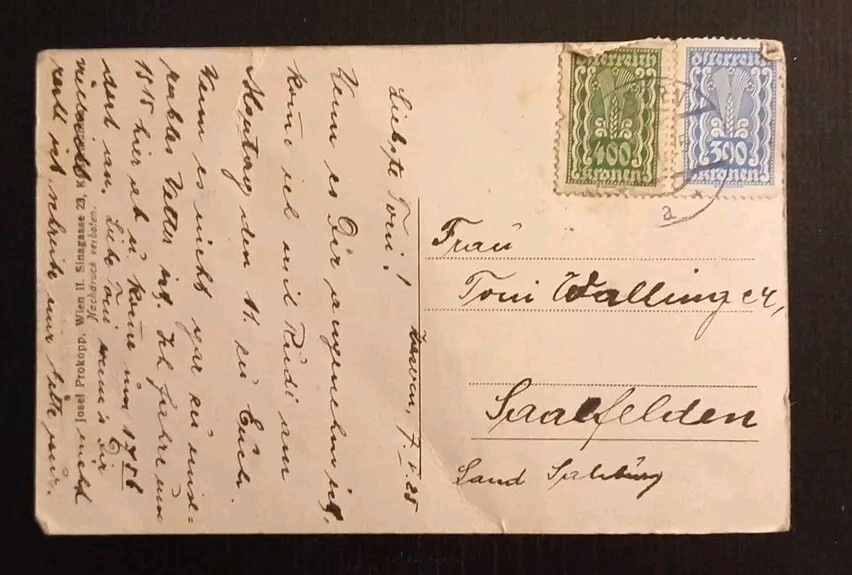 Liebste Toni!
7. V. 25
Wenn es Dir angenehm ist,
komme ich mit Rudi am
Montag den 11. zu Euch.
Wenn es nicht gar zu
Wetter ist. Ich fahre um
15 15 hier ab u. komme um 17 56
dort an. Liebe Toni wenn's Dir
vielleicht nicht
ist schreibe mir bitte
Josef Prokopp, Wien II. Sinagasse 23, K
Nachdruck verboten.
Österreich
400
Kronen
Österreich
300
Kronen
a
Frau
Toni Wallinger,
Saalfelden
Land Salzburg